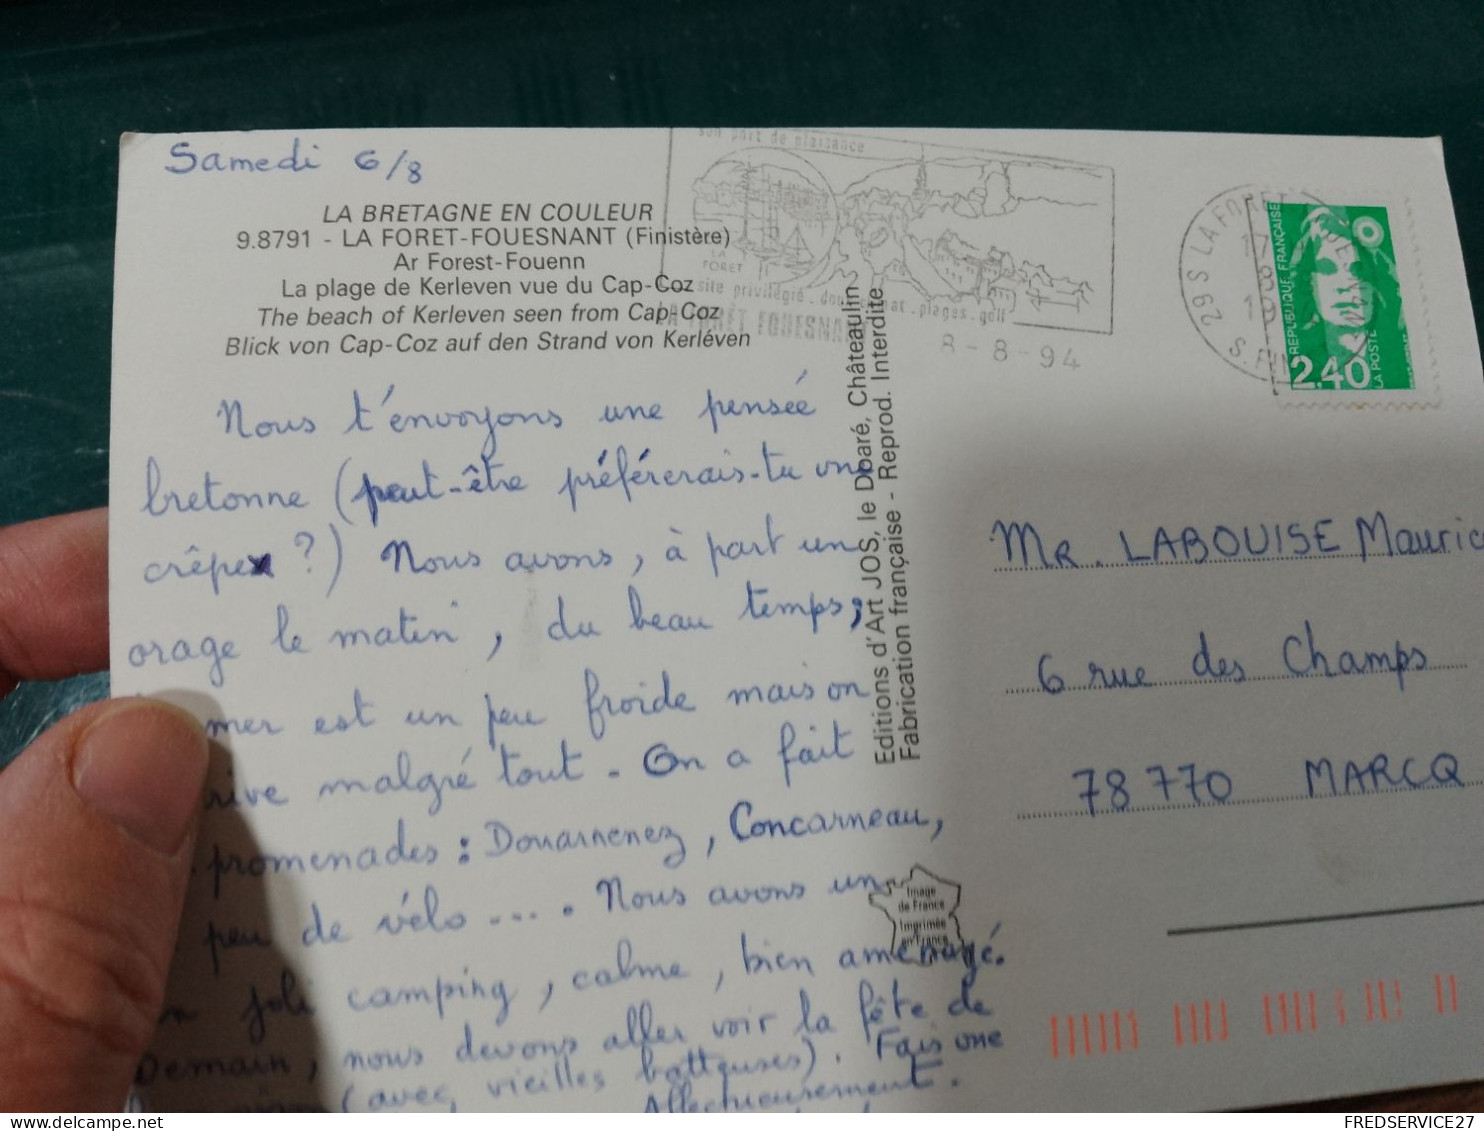 Samedi 6/8
LA BRETAGNE EN COULEUR
9.8791 - LA FORET-FOUESNANT (Finistère)
Ar Forest-Fouenn
La plage de Kerleven vue du Cap-Coz
The beach of Kerleven seen from Cap-Coz
Blick von Cap-Coz auf den Strand von Kerléven
Nous t'envoyons une pensée
bretonne (peut-être préférerais-tu une
crêpe ?) Nous avons, à part un
orage le matin, du beau temps,
mer est un peu froide mais on
rive malgré tout. On a fait
promenades : Douarnenez, Concarneau,
peu de vélo .... Nous avons un
joli camping, calme, bien aménagé.
Demain, nous devons aller voir la fête de
(avec vieilles batteuses). Fais one
Affectueusement.
Editions d'Art JOS, le Doaré, Châteaulin
Fabrication française - Reprod. Interdite
Image
de France
Imprimée
en France
son port de plaisance
LA
FORET
site privilégié. plages. golf
LA FORÊT FOUESNANT
8-8-94
29 S LA FORE
17
8
S. FIN
REPUBLIQUE FRANÇAISE
2,40
LA POSTE
MR. LABOUISE Mauric
6 rue des Champs
78770 MARCQ
FREDSERVICE27